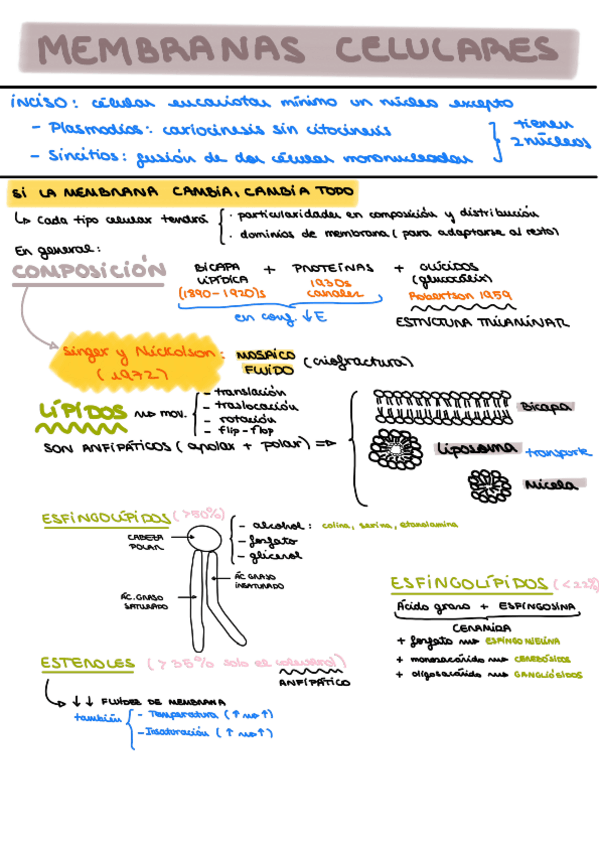 MEMBRANAS CELULARES
inciso: células eucariotas mínimo un núcleo excepto
- Plasmodios: cariocinesis sin citocinesis
- Sincitios: fusión de dos células mononucleadas
tienen
2 núcleos
SI LA MEMBRANA CAMBIA, CAMBIA TODO
↳ Cada tipo celular tendrá
· particularidades en composición y distribución
· dominios de membrana (para adaptarse al resto)
En general:
COMPOSICIÓN
BICAPA LIPÍDICA + PROTEÍNAS + GLÚCIDOS
(glucocálix)
(1890-1920)s
1930s
canales
Robertson 1959
en conf. ↓E
ESTRUCTURA TRILAMINAR
Singer y Nickolson:
(1972)
MOSAICO
FLUIDO
(criofractura)
LÍPIDOS
mov.
- translación
- traslocación
- rotación
- flip-flop
SON ANFIPÁTICOS (apolar + polar) =>
Bicapa
Liposoma
transporte
Micela
ESFINGOLÍPIDOS (>50%)
CABEZA
POLAR
- alcohol: colina, serina, etanolamina
- fosfato
- glicerol
ÁC. GRASO
INSATURADO
ÁC. GRASO
SATURADO
ESFINGOLÍPIDOS (<22%)
Ácido graso + ESFINGOSINA
CERAMIDA
+ fosfato → ESFINGOMIELINA
+ monosacárido → CEREBÓSIDOS
+ oligosacárido → GANGLIÓSIDOS
ESTEROLES (>35% solo el colesterol)
ANFIPÁTICO
↳ ↓↓ FLUIDEZ DE MEMBRANA
también
- Temperatura (↑ → ↑)
- Insaturación (↑ → ↑)